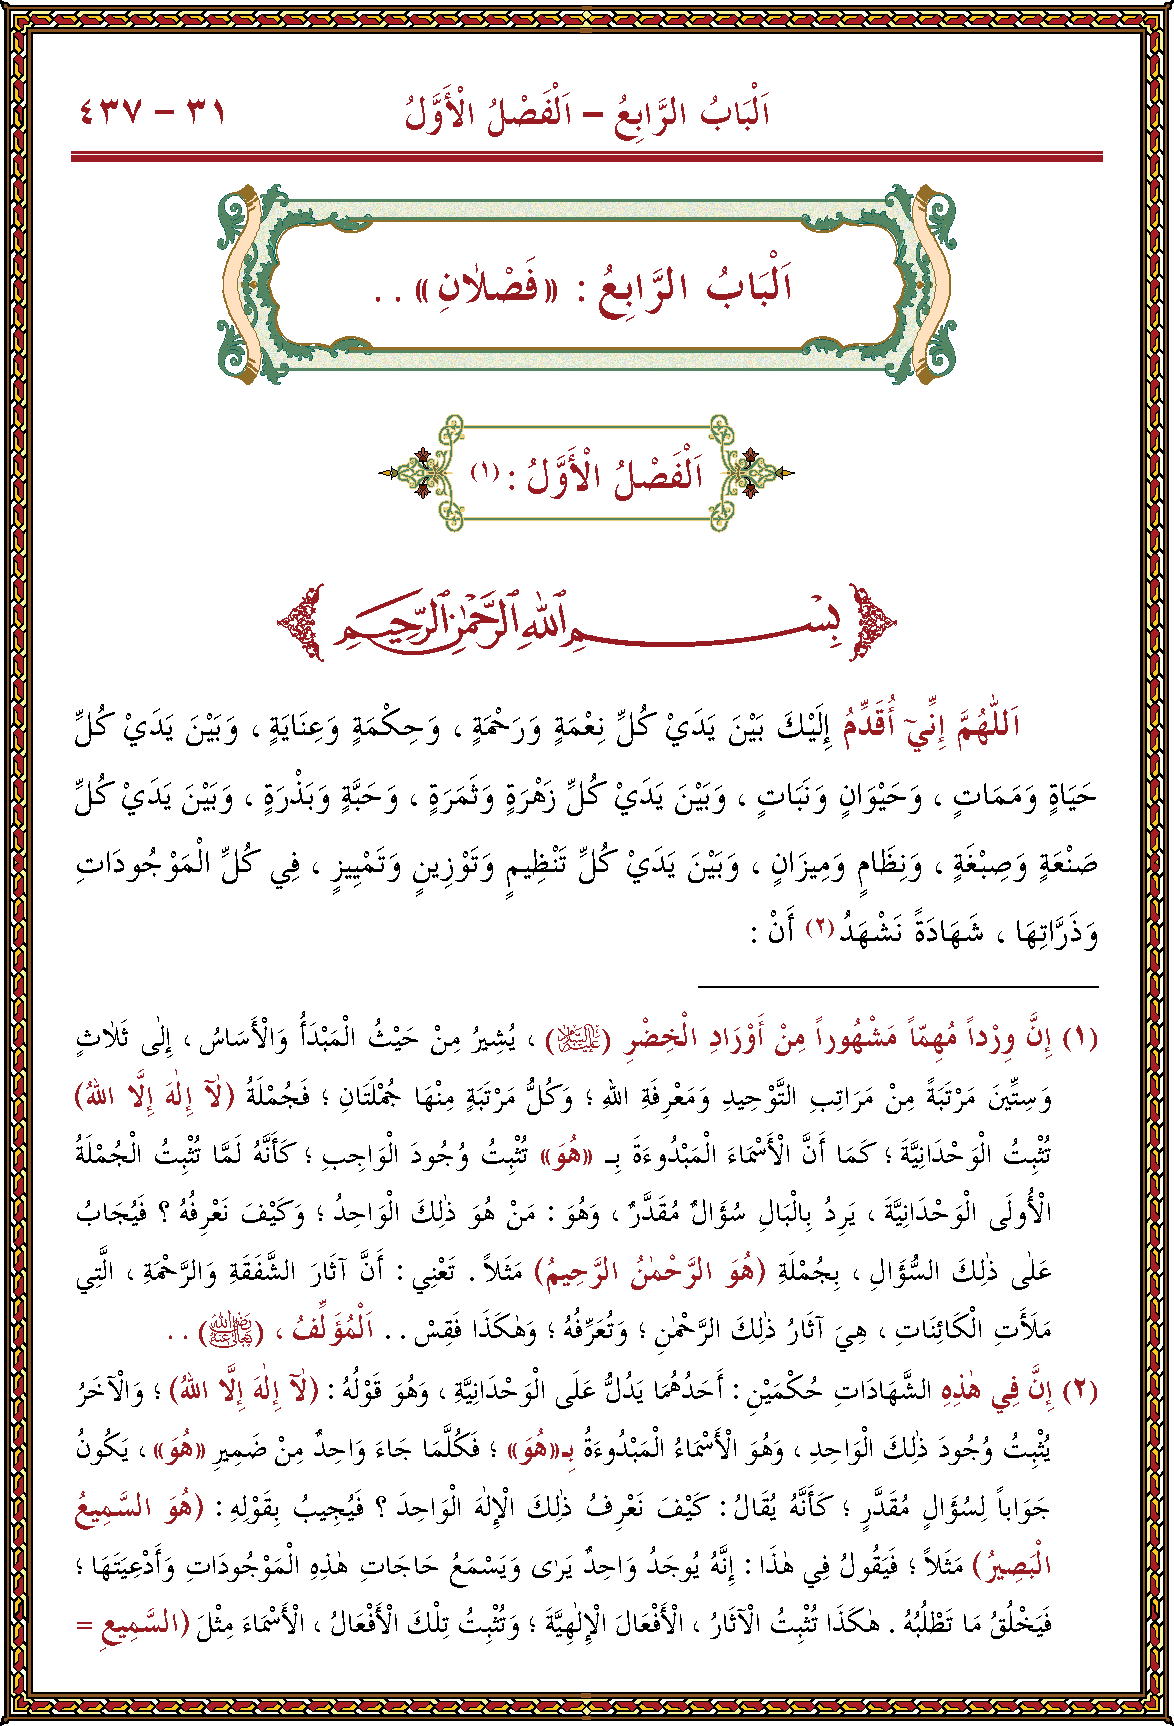 اَلْبَابُ الرَّابِعُ – اَلْفَصْلُ الْأَوَّلُ ٣١ – ٤٣٧
اَلْبَابُ الرَّابِعُ : «فَصْلَانِ» . .
اَلْفَصْلُ الْأَوَّلُ : (١)
بِسْمِ اللهِ الرَّحْمٰنِ الرَّحِيمِ
اَللّٰهُمَّ إِنِّيٓ أُقَدِّمُ إِلَيْكَ بَيْنَ يَدَيْ كُلِّ نِعْمَةٍ وَرَحْمَةٍ ، وَحِكْمَةٍ وَعِنَايَةٍ ، وَبَيْنَ يَدَيْ كُلِّ
حَيَاةٍ وَمَمَاتٍ ، وَحَيْوَانٍ وَنَبَاتٍ ، وَبَيْنَ يَدَيْ كُلِّ زَهْرَةٍ وَثَمَرَةٍ ، وَحَبَّةٍ وَبَذْرَةٍ ، وَبَيْنَ يَدَيْ كُلِّ
صَنْعَةٍ وَصِبْغَةٍ ، وَنِظَامٍ وَمِيزَانٍ ، وَبَيْنَ يَدَيْ كُلِّ تَنْظِيمٍ وَتَوْزِينٍ وَتَمْيِيزٍ ، فِي كُلِّ الْمَوْجُودَاتِ
وَذَرَّاتِهَا ، شَهَادَةً نَشْهَدُ(٢) أَنْ :
(١) إِنَّ وِرْداً مُهِمّاً مَشْهُوراً مِنْ أَوْرَادِ الْخِضْرِ (عَلَيْهِ السَّلَامُ) ، يُشِيرُ مِنْ حَيْثُ الْمَبْدَأُ وَالْأَسَاسُ ، إِلٰى ثَلَاثٍ
وَسِتِّينَ مَرْتَبَةً مِنْ مَرَاتِبِ التَّوْحِيدِ وَمَعْرِفَةِ اللهِ ؛ وَكُلُّ مَرْتَبَةٍ مِنْهَا جُمْلَتَانِ ؛ فَجُمْلَةُ (لَآ إِلٰهَ إِلَّا اللهُ)
تُثْبِتُ الْوَحْدَانِيَّةَ ؛ كَمَا أَنَّ الْأَسْمَاءَ الْمَبْدُوءَةَ بِـ «هُوَ» تُثْبِتُ وُجُودَ الْوَاجِبِ ؛ كَأَنَّهُ لَمَّا تُثْبِتُ الْجُمْلَةُ
الْأُولَى الْوَحْدَانِيَّةَ ، يَرِدُ بِالْبَالِ سُؤَالٌ مُقَدَّرٌ ، وَهُوَ : مَنْ هُوَ ذٰلِكَ الْوَاحِدُ ؛ وَكَيْفَ نَعْرِفُهُ ؟ فَيُجَابُ
عَلٰى ذٰلِكَ السُّؤَالِ ، بِجُمْلَةِ (هُوَ الرَّحْمٰنُ الرَّحِيمُ) مَثَلاً . تَعْنِي : أَنَّ آثَارَ الشَّفَقَةِ وَالرَّحْمَةِ ، الَّتِي
مَلَأَتِ الْكَائِنَاتِ ، هِيَ آثَارُ ذٰلِكَ الرَّحْمٰنِ ؛ وَتُعَرِّفُهُ ؛ وَهٰكَذَا فَقِسْ . . اَلْمُؤَلِّفُ ، (رَضِيَ اللهُ تَعَالَى عَنْهُ) . .
(٢) إِنَّ فِي هٰذِهِ الشَّهَادَاتِ حُكْمَيْنِ : أَحَدُهُمَا يَدُلُّ عَلَى الْوَحْدَانِيَّةِ ، وَهُوَ قَوْلُهُ : (لَآ إِلٰهَ إِلَّا اللهُ) ؛ وَالْآخَرُ
يُثْبِتُ وُجُودَ ذٰلِكَ الْوَاحِدِ ، وَهُوَ الْأَسْمَاءُ الْمَبْدُوءَةُ بِـ«هُوَ» ؛ فَكُلَّمَا جَاءَ وَاحِدٌ مِنْ ضَمِيرِ «هُوَ» ، يَكُونُ
جَوَاباً لِسُؤَالٍ مُقَدَّرٍ ؛ كَأَنَّهُ يُقَالُ : كَيْفَ نَعْرِفُ ذٰلِكَ الْإِلٰهَ الْوَاحِدَ ؟ فَيُجِيبُ بِقَوْلِهِ : (هُوَ السَّمِيعُ
الْبَصِيرُ) مَثَلاً ؛ فَيَقُولُ فِي هٰذَا : إِنَّهُ يُوجَدُ وَاحِدٌ يَرٰى وَيَسْمَعُ حَاجَاتِ هٰذِهِ الْمَوْجُودَاتِ وَأَدْعِيَتَهَا ؛
فَيَخْلُقُ مَا تَطْلُبُهُ . هٰكَذَا تُثْبِتُ الْآثَارُ ، الْأَفْعَالَ الْإِلٰهِيَّةَ ؛ وَتُثْبِتُ تِلْكَ الْأَفْعَالُ ، الْأَسْمَاءَ مِثْلَ (السَّمِيعِ =